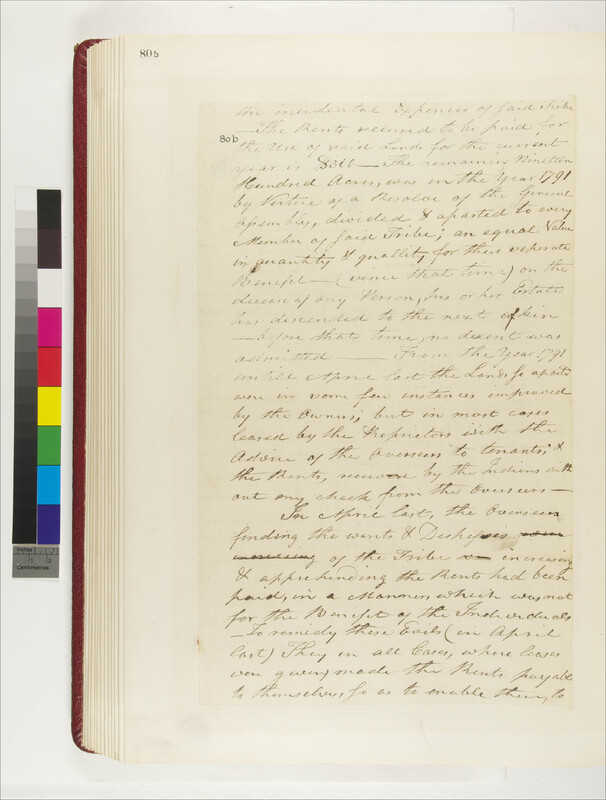 80b
80b
the incidental Expences of said Tribe
— The Rents secured to be paid for
the Use of said Lands for the current
year is $3 — The remaining Nineteen
Hundred Acres, was in the Year 1791
by Virtue of a Resolve of the General
Assembly, divided & aparted to every
Member of said Tribe; an equal Value
in quantity & quality, for their seperate
Benefit — (since that time) on the
decease of any Person, his or her Estate
has descended to the next of kin
— before that time, no decent was
admitted — From the Year 1791
untill April last the Lands so aparted
were in some few instances improved
by the Owners; but in most cases
leased by the Proprietors with the
Advice of the Overseers to tenants, &
the Rents, by the Indians with
out any check from the Overseers —
In April last, the Overseers
finding the wants & of the Tribe increasing
& apprehending the Rents had been
paid, in a Manner, which was not
for the Benefit of the Individuals
— To remidy these Evils (in April
last) They in all Cases, where leases
were given, made the Rents payable
to themselves, so as to enable them, to
Inches
Centimetres